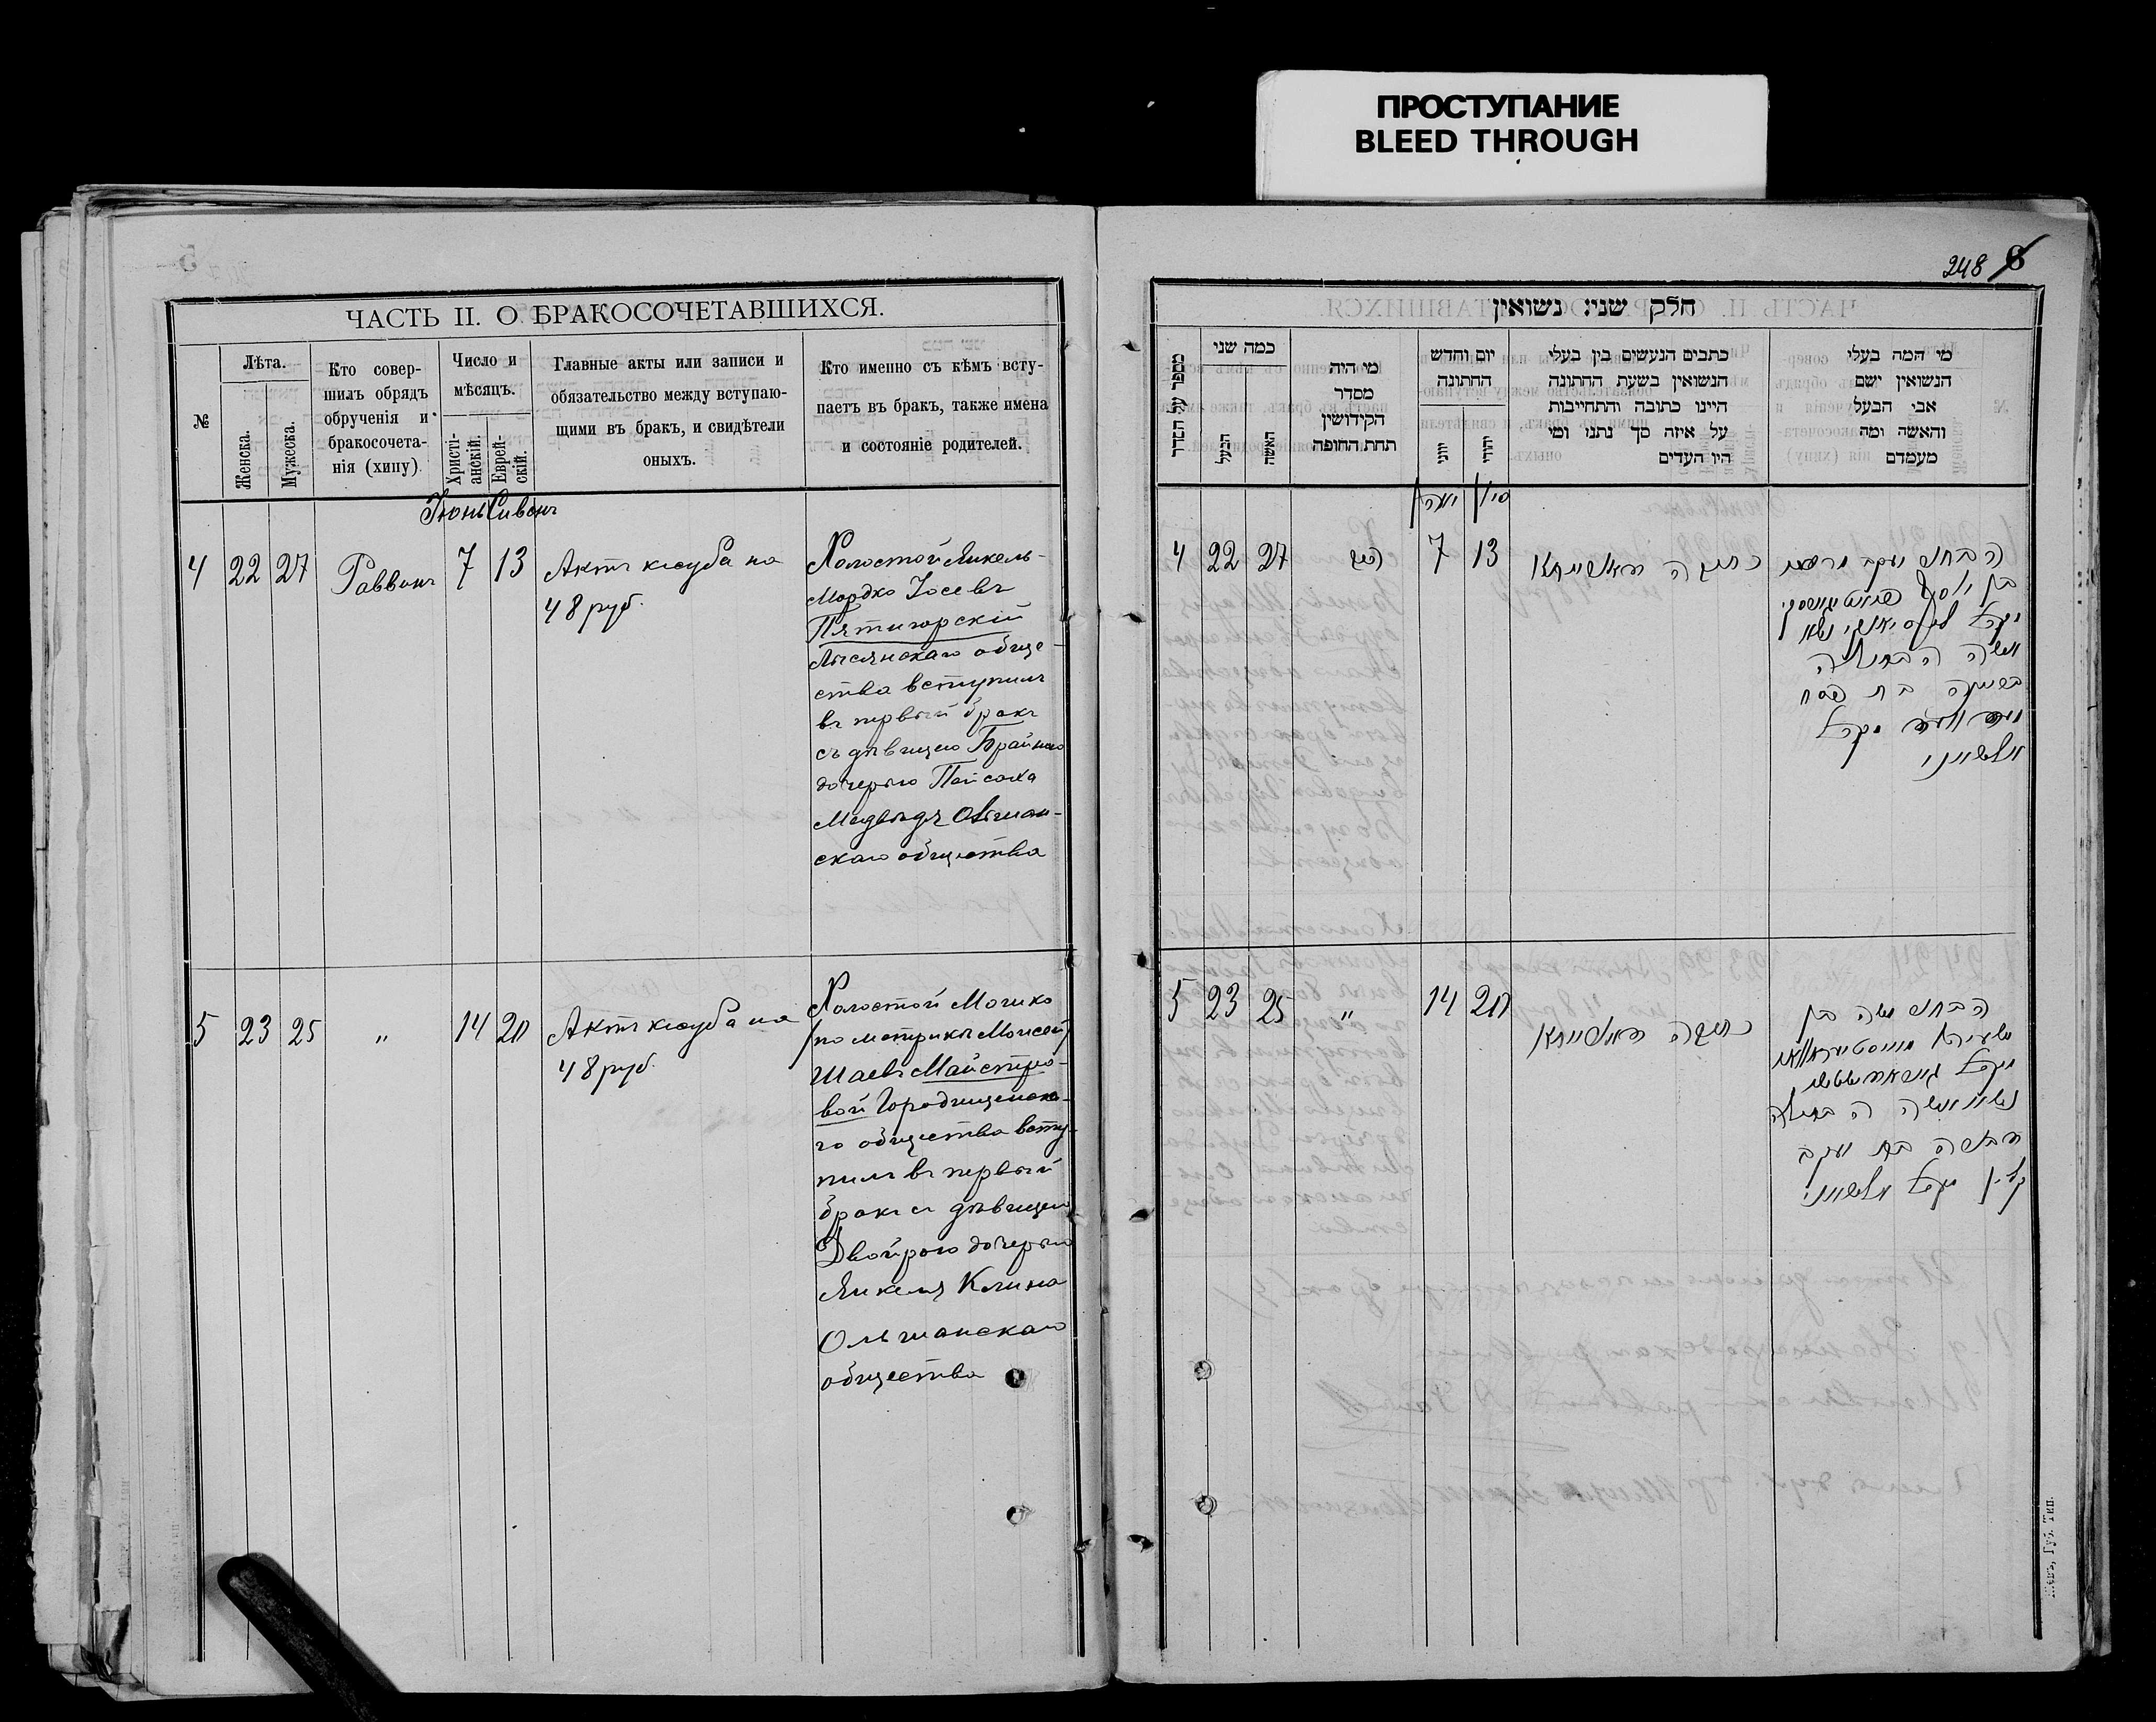 ПРОСТУПАНИЕ
BLEED THROUGH
ЧАСТЬ II. О БРАКОСОЧЕТАВШИХСЯ.
№
Лѣта.
Женска.
Мужеска.
Кто совер-
шилъ обрядъ
обрученія и
бракосочета-
нія (хипу)
Число и
мѣсяцъ.
Христі-
анскій.
Еврей-
скій.
Главные акты или записи и
обязательство между вступаю-
щими въ бракъ, и свидѣтели
оныхъ.
Кто именно съ кѣмъ всту-
паетъ въ бракъ, также имена
и состояніе родителей.
Іюнь Сивонъ
4 22 27 Раввинъ 7 13
Актъ ксуба на
48 руб.
Холостой Янкель-
Мордко Іосевъ
Пятигорскій
Лысянскаго обще-
ства вступилъ
въ первый бракъ
съ дѣвицею Брайною
дочерью Пейсаха
Медвѣдъ Ольшан-
скаго общества
5 23 25 „ 14 20
Актъ ксуба на
48 руб.
Холостой Мошко
(по метрикѣ Мойсей)
Шаевъ Майстро-
вой Городищенска-
го общества всту-
пилъ въ первый
бракъ съ дѣвицею
Двойрою дочерью
Янкеля Клина
Ольшанскаго
общества
248 6
חלק שני: נשואין
מספר על הסדר
כמה שני
הבעל
האשה
מי היה
מסדר
הקידושין
תחת החופה
יום וחדש
החתונה
יווני
יהודי
כתבים הנעשים בין בעלי
הנשואין בשעת החתונה
היינו כתובה והתחייבות
על איזה סך נתנו ומי
היו העדים
מי המה בעלי
הנשואין ישם
אבי הבעל
והאשה ומה
מעמדם
סיון
4 22 27 הרב 7 13
כתובה
הבחור יעקב מרדכי
בן יוסף
ונשא
אשה הבתולה
בריינה בת פסח
מקהל
אלשיוני
5 23 25 „ 14 20
כתובה
הבחור משה בן
ישעיה
מקהל
נשוי אשה הבתולה
דבורה בת יעקב
קלין מקהל אלשיוני
Кіевъ, Губ. Тип.